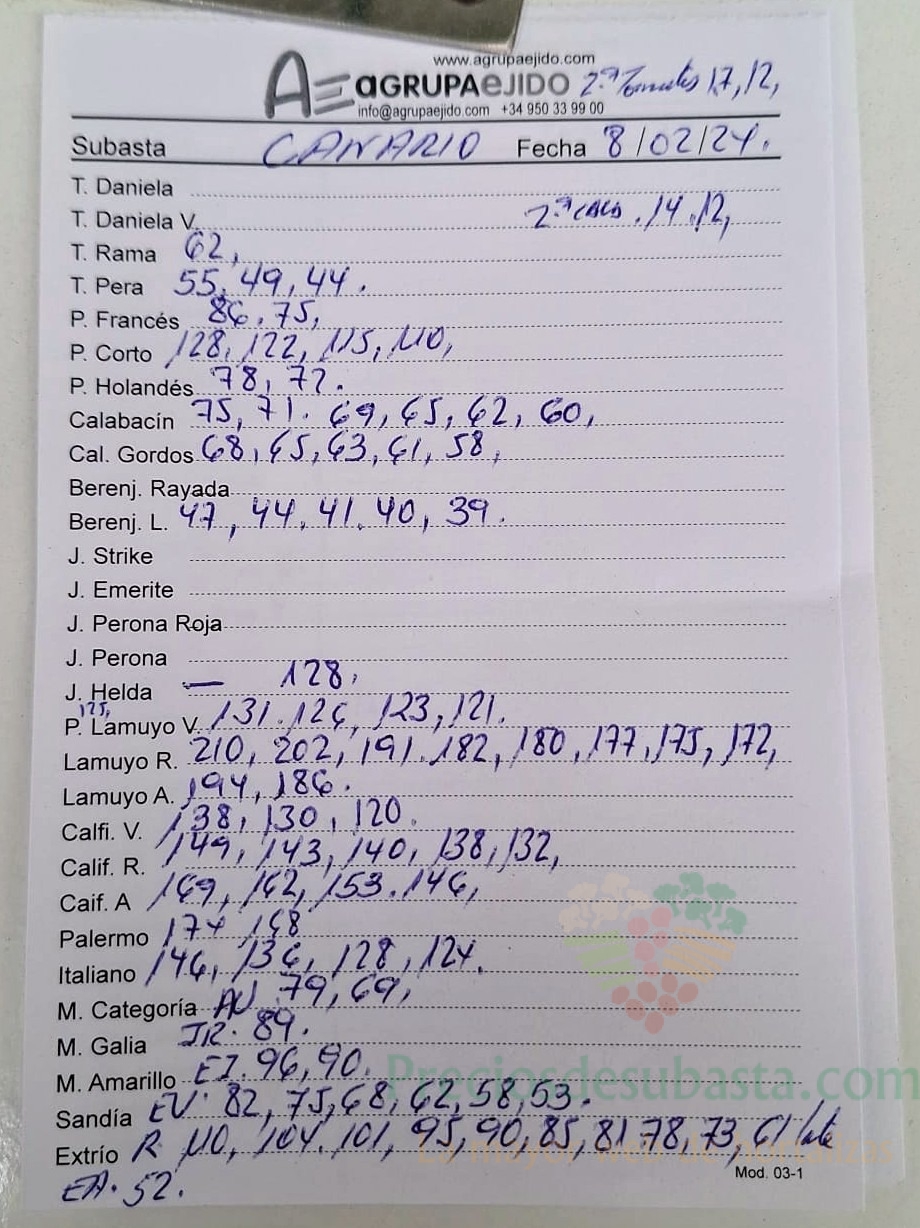 www.agrupaejido.com
AE aGRUPAEJIDO 2ª Tomates 17, 12,
info@agrupaejido.com +34 950 33 99 00
Subasta CANARIO Fecha 8/02/24.
T. Daniela
T. Daniela V. 2ª . 14. 12,
T. Rama 62,
T. Pera 55, 49, 44.
P. Francés 86, 75,
P. Corto 128, 122, 115, 110,
P. Holandés 78, 72.
Calabacín 75, 71. 69, 65, 62, 60,
Cal. Gordos 68, 65, 63, 61, 58,
Berenj. Rayada
Berenj. L. 47, 44, 41. 40, 39.
J. Strike
J. Emerite
J. Perona Roja
J. Perona
J. Helda — 128,
125,
P. Lamuyo V. 131. 126, 123, 121.
Lamuyo R. 210, 202, 191. 182, 180, 177, 175, 172,
Lamuyo A. 194, 186.
Calfi. V. 138, 130, 120.
Calif. R. 149, 143, 140, 138, 132,
Caif. A 169, 162, 153. 146,
Palermo 174, 168
Italiano 146, 136, 128, 124.
M. Categoría AV 79, 69,
M. Galia JR. 89.
M. Amarillo EJ. 96, 90.
Preciosdesubasta.com
Sandía EV. 82, 75, 68, 62, 58, 53.
Extrío R 110, 104. 101, 95, 90, 85, 81. 78, 73, 61
Mod. 03-1
EA. 52.